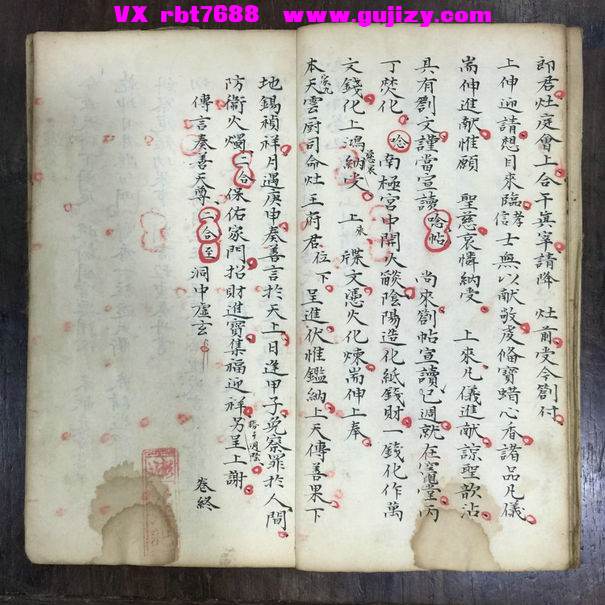 VX rbt7688 www.gujizy.com
郎君灶庭會上合千真宰請降 灶前受令劄付
上伸迎請想目來臨孝信士無以献敬虔俻寶蜡心香諸品凡儀
耑伸進献惟願 聖慈哀憐納受 上來凡儀進献諒聖歆沾
具有劄文謹當宣讀 唸帖 尚來劄帖宣讀已週就在竈堂丙
丁焚化 唸 南極宮中開人燄陰陽造化紙錢財一錢化作萬
文錢化上鴻納受 上來 牒文憑火化煉耑伸上奉
本天雲厨司命灶王府君位下 呈進伏惟鑑納上天傳善果下
地錫禎祥月遇庚申奏善言於天上日逢甲子免察罪於人間
防衛火燭 二合 保佑家門招財進寶集福迎祥為呈上謝
傳言奏善天尊 二合至 洞中虛玄
卷終